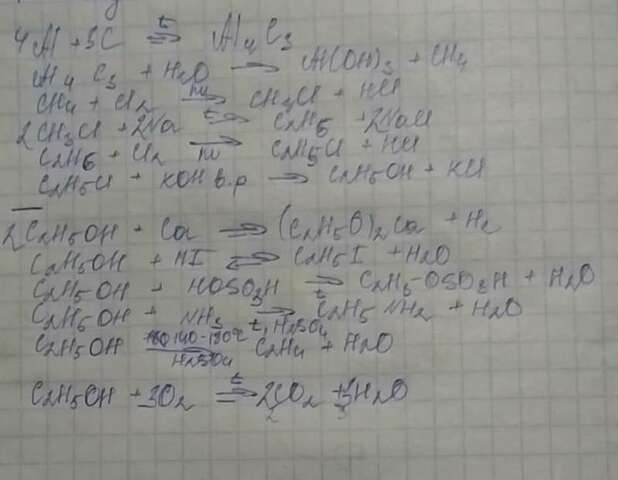 4Al + 3C ⇉ t Al4C3
Al4C3 + H2O → Al(OH)3 + CH4
CH4 + Cl2 → hν CH3Cl + HCl
2CH3Cl + 2Na → t C2H6 + 2NaCl
C2H6 + Cl2 → hν C2H5Cl + HCl
C2H5Cl + KOH в.р → C2H5OH + KCl
2C2H5OH + Ca → (C2H5O)2Ca + H2
C2H5OH + HI ⇄ C2H5I + H2O
C2H5OH + HOSO3H → t C2H5-OSO3H + H2O
C2H5OH + NH3 → t, H2SO4 C2H5NH2 + H2O
C2H5OH → 140-180°C H2SO4 C2H4 + H2O
C2H5OH + 3O2 → t 2CO2 + 3H2O
2 3